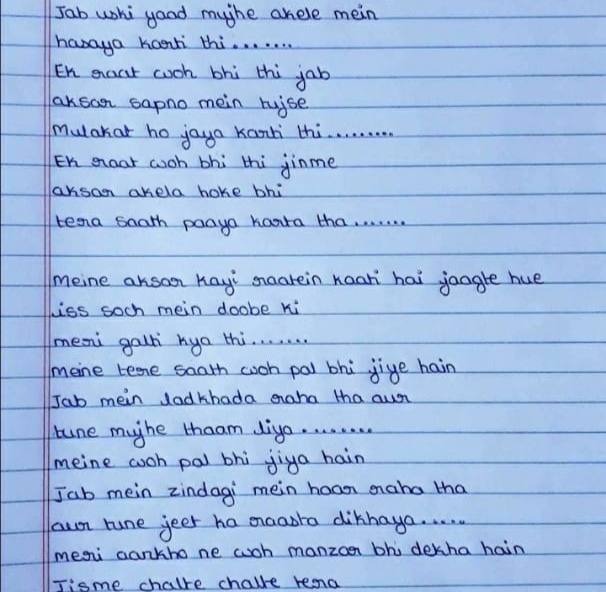 Jab uski yaad mujhe akele mein
hasaya karti thi.......
Ek raat woh bhi thi jab
aksar sapno mein tujse
Mulakat ho jaya karti thi.........
Ek raat woh bhi thi jinme
aksar akela hoke bhi
tera saath paaya karta tha.......
Meine aksar kayi raatein kaati hai jaagte hue
iss soch mein doobe ki
meri galti kya thi.......
meine tere saath woh pal bhi jiye hain
Jab mein ladkhada raha tha aur
tune mujhe thaam liya........
meine woh pal bhi jiya hain
Jab mein zindagi mein haar raha tha
aur tune jeet ka raasta dikhaya.....
meri aankho ne woh manzar bhi dekha hain
Jisme chalte chalte tera